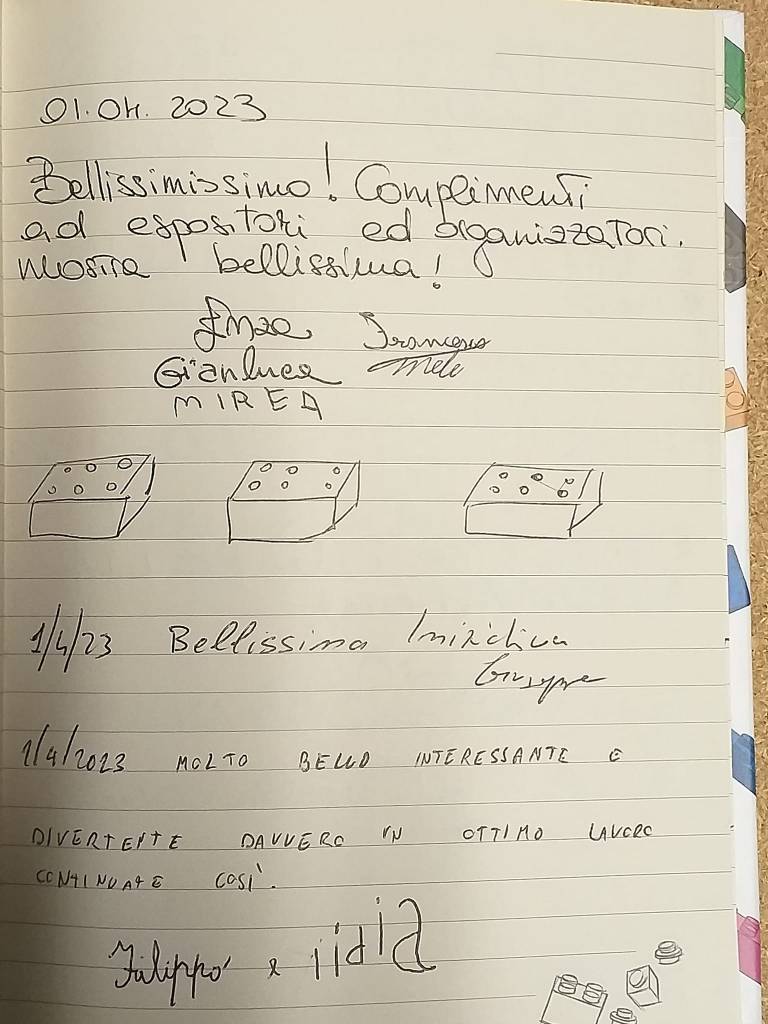 01.04.2023
Bellissimissimo! Complimenti
ad espositori ed organizzatori.
Mostra bellissima!
Francesco
Gianluca Mele
MIREA
1/4/23 Bellissima Iniziativa
Giuseppe
1/4/2023 MOLTO BELLO INTERESSANTE E
DIVERTENTE DAVVERO UN OTTIMO LAVORO
CONTINUATE COSÌ.
Filippo &